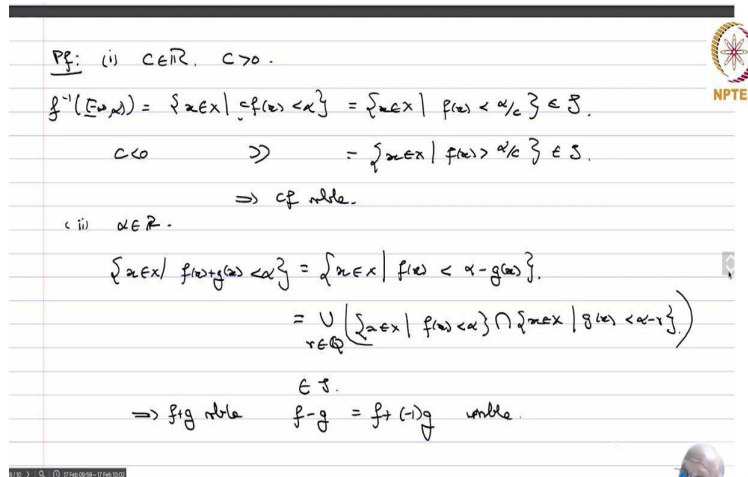 Pf: (i) C∈ℝ. C>0.
NPTE
f⁻¹([-∞,α)) = {x∈X | cf(x) <α} = {x∈X | f(x) < α/c} ∈ S.
C<0 >> = {x∈X | f(x) > α/c} ∈ S.
⇒ cf mble.
(ii) α∈ℝ.
{x∈X | f(x)+g(x) <α} = {x∈X | f(x) < α-g(x)}.
= ∪ r∈ℚ ({x∈X | f(x) <α} ∩ {x∈X | g(x) <α-r})
∈ S.
⇒ f+g mble f-g = f+(-1)g mble.
17 Feb 09:59 – 17 Feb 10:02